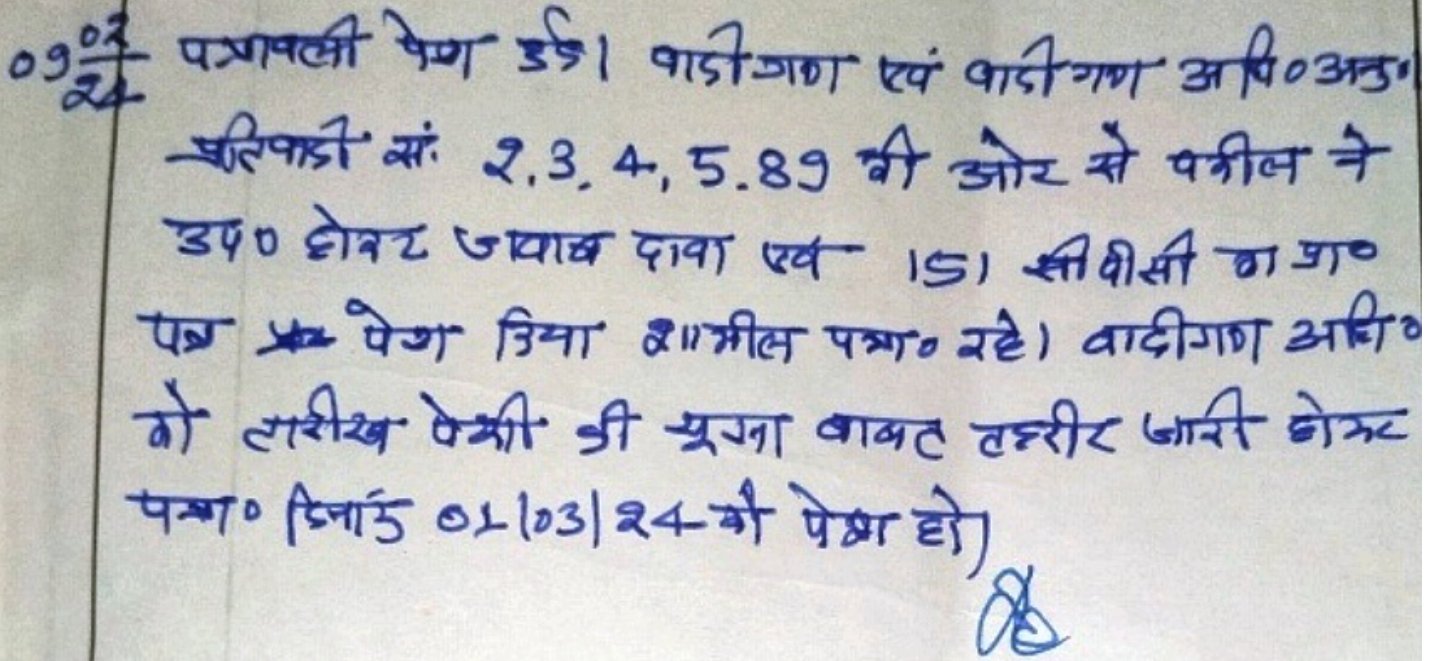 09 02/24 पत्रावली पेश हुई। वादीगण एवं वादीगण अधि० अनु०
प्रतिवादी सं. 2,3,4,5.89 की ओर से वकील ने
उप० होकर जवाब दावा एवं 151 सीपीसी का प्रा०
पत्र पेश किया शामील पत्रा० रहे। वादीगण अधि०
को तारीख पेशी की सूचना बाबत तहरीर जारी होकर
पत्रा० दिनांक 01/03/24 को पेश हो।